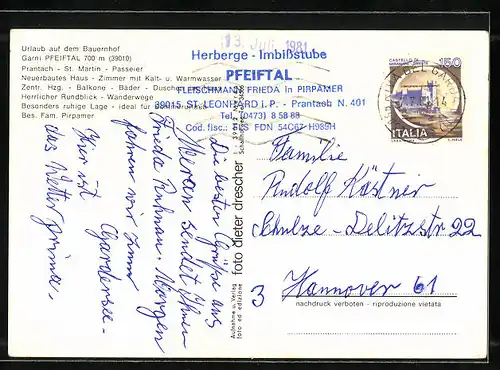 Urlaub auf dem Bauernhof
Garni PFEIFTAL 700 m (39010)
Prantach - St. Martin - Passeier
Neuerbautes Haus - Zimmer mit Kalt- u. Warmwasser
Zentr. Hzg. - Balkone - Bäder - Duschen
Herrlicher Rundblick - Wanderwege
Besonders ruhige Lage - ideal für
Bes. Fam. Pirpamer
13. Juli 1981
Herberge - Imbißstube
PFEIFTAL
FLEISCHMANN FRIEDA in PIRPAMER
39015 ST. LEONHARD i. P. - Prantach N. 401
Tel. (0473) 8 58 88
Cod. fisc.: FLS FDN 54C67 H989H
CASTELLO DI
150
ITALIA
Die besten Grüße aus
Meran sendet Ihnen
Frieda Ruhnau. Morgen
fahren wir zum
Gardasee.
Hier ist
das Wetter prima.
Aufnahme u. Verlag
foto ed edizione
foto dieter drescher
Familie
Rudolf Kästner
Schulze-Delitzstr 22
3 Hannover 61
nachdruck verboten - riproduzione vietata